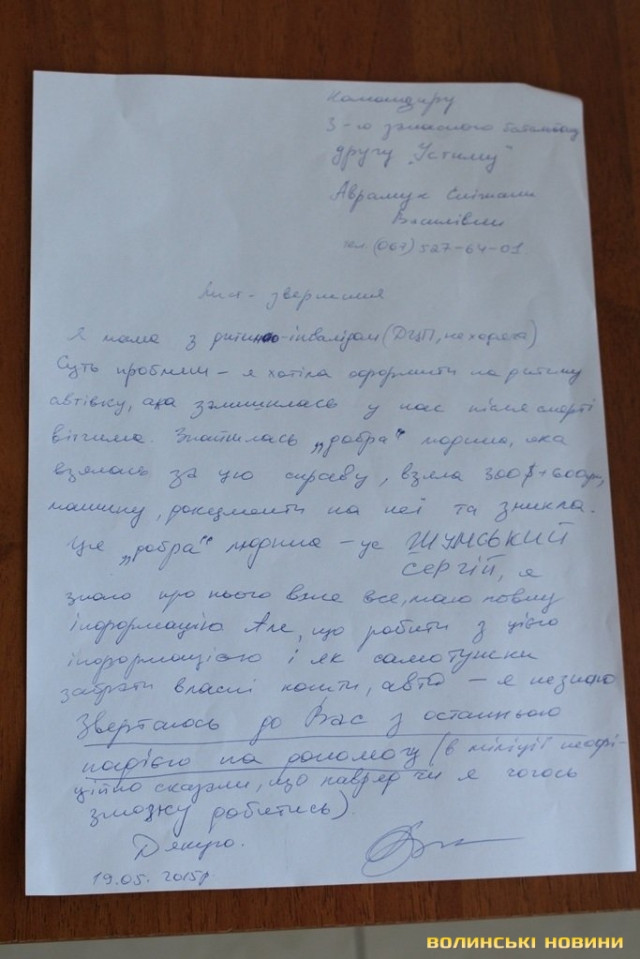 Командиру
3-го запасного батальйону
другу „Устиму"
Аврамук Сніжани
Василівни
тел. (067) 527-64-01
Лист - звернення
Я мама з дитиною-інвалідом (ДЦП, не ходяча)
Суть проблеми – я хотіла оформити на дитину
автівку, яка залишилась у нас після смерті
вітчима. Знайшлась „добра" людина, яка
взялась за цю справу, взяла 300$ + 600грн,
машину, документи на неї та зникла.
Ця „добра" людина – це ШУМСЬКИЙ
СЕРГІЙ, я
знаю про нього вже все, маю повну
інформацію. Але, що робити з цією
інформацією і як самотужки
забрати власні кошти, авто – я не знаю
Звертаюсь до Вас з останньою
надією на допомогу (в міліції неофі-
ційно сказали, що навряд чи я чогось
зможу добитись).
Дякую.
19.05.2015р.
ВОЛИНСЬКІ НОВИНИ